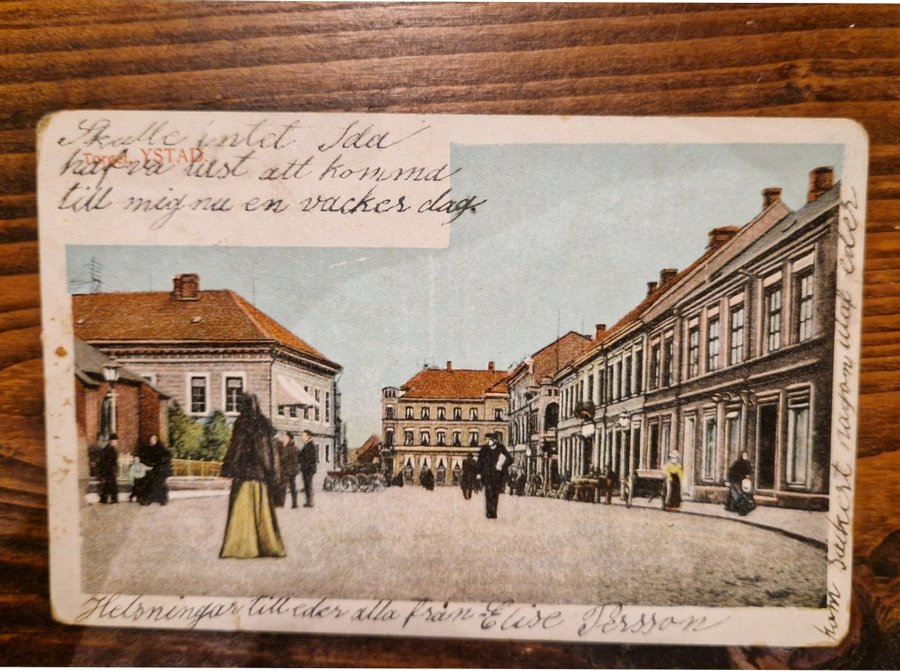 Skulle intet Ida
Torget, YSTAD.
hafva lust att komma
till mig nu en vacker dag.
kom säkert någon utaf eder
Helsningar till eder alla från Elise Persson